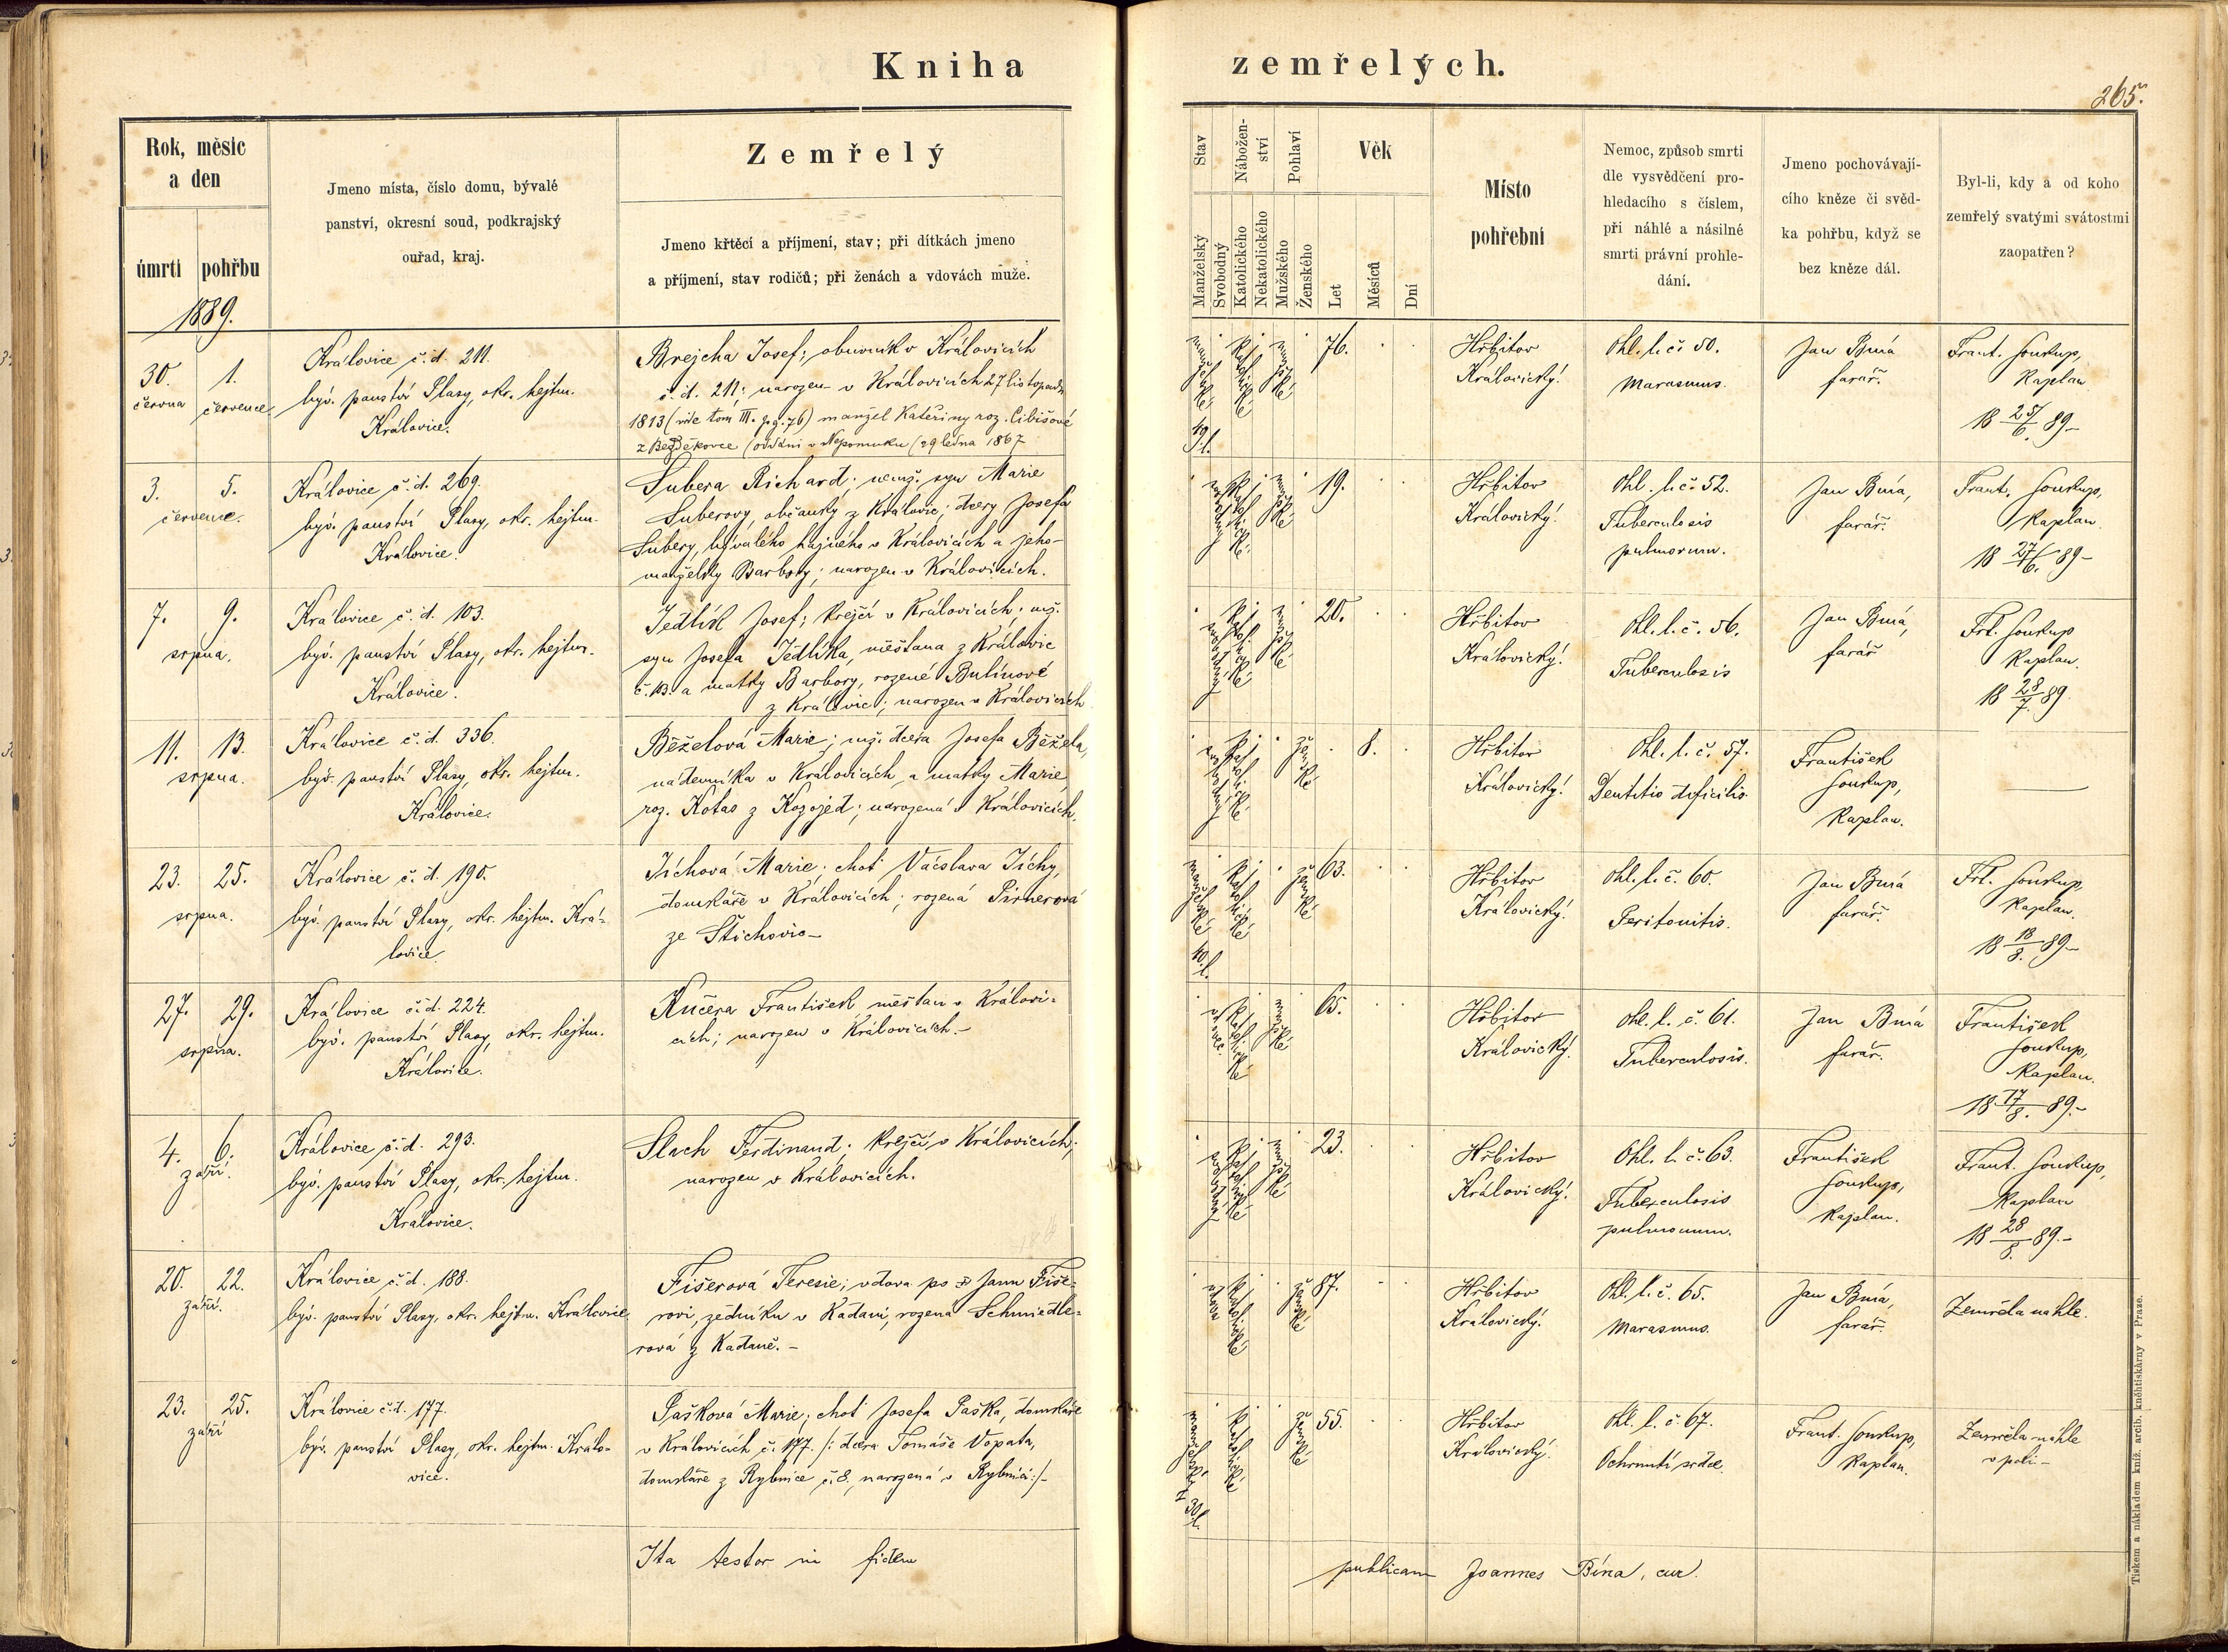 Kniha
zemřelých.
265.
Rok, měsíc
a den
úmrtí
pohřbu
1889.
Jmeno místa, číslo domu, bývalé
panství, okresní soud, podkrajský
ouřad, kraj.
Zemřelý
Jmeno křtěcí a příjmení, stav; při dítkách jmeno
a příjmení, stav rodičů; při ženách a vdovách muže.
Stav
Manželský
Svobodný
Nábožen-
ství
Katolického
Nekatolického
Pohlaví
Mužského
Ženského
Věk
Let
Měsíců
Dní
Místo
pohřební
Nemoc, způsob smrti
dle vysvědčení pro-
hledacího s číslem,
při náhlé a násilné
smrti právní prohle-
dání.
Jmeno pochovávají-
cího kněze či svěd-
ka pohřbu, když se
bez kněze dál.
Byl-li, kdy a od koho
zemřelý svatými svátostmi
zaopatřen?
30. 1.
června července
Královice č. d. 211.
býv. panství Plasy, okr. hejtm.
Královice.
Brejcha Josef; obuvník v Královicích
č. d. 211; narozen v Královicích 27 listopadu
1813 (vide tom III. pg. 76) manžel Kateřiny roz. Cibišové
z Bezděkovce (oddáni v Nepomuku (29 ledna 1867
manželské
19 l.
katolické
mužské
76.
Hřbitov
Královický.
Ohl. l. č. 50.
Marasmus.
Jan Bína
farář.
Frant. Soukup,
Kaplan
18 25/6. 89-
3. 5.
července.
Královice č. d. 269.
býv. panství Plasy, okr. hejtm.
Královice.
Subera Richard; nemž. syn Marie
Suberovy, občanky z Královic; dcery Josefa
Subery, bývalého hajného v Královicích a jeho
manželky Barbory; narozen v Královicích.
svobodný
katolické
mužské
19.
Hřbitov
Královický.
Ohl. l. č. 52.
Tuberculosis
pulmonum.
Jan Bína,
farář.
Frant. Soukup,
Kaplan.
18 27/6. 89-
7. 9.
srpna.
Královice č. d. 103.
býv. panství Plasy, okr. hejtm.
Královice.
Jedlík Josef; krejčí v Královicích; mž.
syn Josefa Jedlíka, měšťana z Královic
č. 103. a matky Barbory, rozené Bulínové
z Královic; narozen v Královicích
svobodný
katolické
mužské
20.
Hřbitov
Královický.
Ohl. l. č. 56.
Tuberculosis
Jan Bína,
farář
Frt. Soukup
Kaplan.
18 28/7. 89.
11. 13.
srpna.
Královice č. d. 336.
býv. panství Plasy, okr. hejtm.
Královice.
Běželová Marie; mž. dcera Josefa Běžela,
nádenníka v Královicích a matky Marie
roz. Kotas z Kozojed; narozená v Královicích.
svobodný
katolické
ženské
8.
Hřbitov
Královický.
Ohl. l. č. 57.
Dentitio dificilis
František
Soukup,
Kaplan.
23. 25.
srpna.
Královice č. d. 190.
býv. panství Plasy, okr. hejtm. Krá-
lovice.
Jíchová Marie, choť Václava Jíchy,
domkáře v Královicích; rozená Pirnerová
ze Štichovic-
manželské
40 l.
katolické
ženské
63.
Hřbitov
Královický.
Ohl. l. č. 60.
Peritonitis.
Jan Bína
farář.
Frt. Soukup,
Kaplan.
18 18/8. 89-
27. 29.
srpna.
Královice č. d. 224.
býv. panství Plasy, okr. hejtm.
Královice.
Kučera František měšťan v Královi-
cích; narozen v Královicích.-
vdovec
katolické
mužské
65.
Hřbitov
Královický.
Ohl. l. č. 61.
Tuberculosis.
Jan Bína
farář.
František
Soukup,
Kaplan.
18 17/8. 89.-
4. 6.
září.
Královice č. d. 293.
býv. panství Plasy, okr. hejtm.
Královice.
Slach Ferdinand; krejčí v Královicích;
narozen v Královicích.
svobodný
katolické
mužské
23.
Hřbitov
Královický.
Ohl. l. č. 63.
Tuberculosis
pulmonum.
František
Soukup,
Kaplan.
Frant. Soukup,
Kaplan
18 28/8. 89.-
20. 22.
září.
Královice č. d. 188.
býv. panství Plasy, okr. hejtm. Královice
Fišerová Teresie; vdova po Janu Fiše-
rovi, zedníku v Kadani, rozená Schmiedle-
rová z Kadaně.-
vdova
katolické
ženské
87.
Hřbitov
Královický.
Ohl. l. č. 65.
Marasmus.
Jan Bína,
farář.
Zemřela náhle.
23. 25.
září
Královice č. d. 177.
býv. panství Plasy, okr. hejtm. Králo-
vice.
Pašková Marie; choť Josefa Paška, domkáře
v Královicích č. 177. /: dcera Tomáše Vopata,
domkáře z Rybnice č. 8., narozená v Rybnici :/-
manželský
30 l.
katolické
ženské
55.
Hřbitov
Královický.
Ohl. l. č. 67.
Ochrnutí srdce
Frant. Soukup,
Kaplan.
Zemřela náhle
v poli-
Ita testor in fidem
publicam Joannes Bína, cur.
Tiskem a nákladem kníž. arcib. kněhtiskárny v Praze.